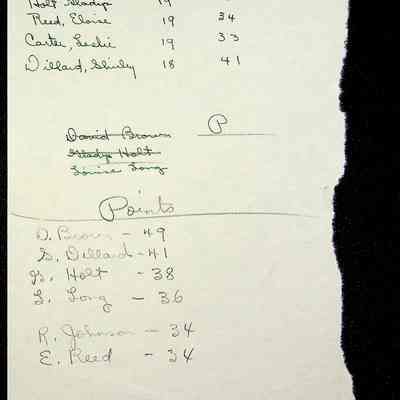 Holt Gladys 19
Reed, Eloise 19 34
Carter, Leslie 19 33
Dillard, Shirley 18 41
David Brown P
Gladys Holt
Louise Long
Points
D. Brown - 49
S. Dillard - 41
G. Holt - 38
L. Long - 36
R. Johnson - 34
E. Reed - 34